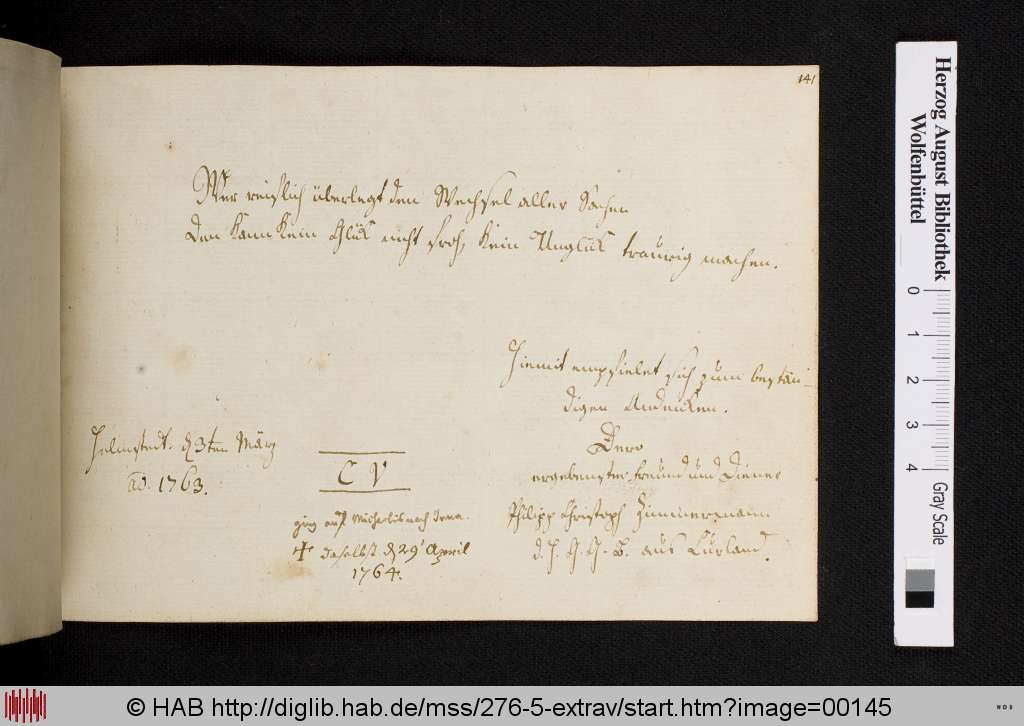 141
Wer reiflich überlegt den Wechsel aller Sachen
Den kann kein Glük nicht froh, kein Unglük traürig machen.
Hiemit empfielet sich zum bestän-
digen Andencken.
Dero
ergebenster Freund und Diener
Philipp Christoph Zimmermann
d. H. G. G. B. aüs Cürland.
Helmstedt. d 3ten März
ao. 1763.
C V
ging auf Michaelis nach Jena.
† daselbst d 29 April
1764.
Herzog August Bibliothek
Wolfenbüttel
0 1 2 3 4
Gray Scale
© HAB http://diglib.hab.de/mss/276-5-extrav/start.htm?image=00145
HAB